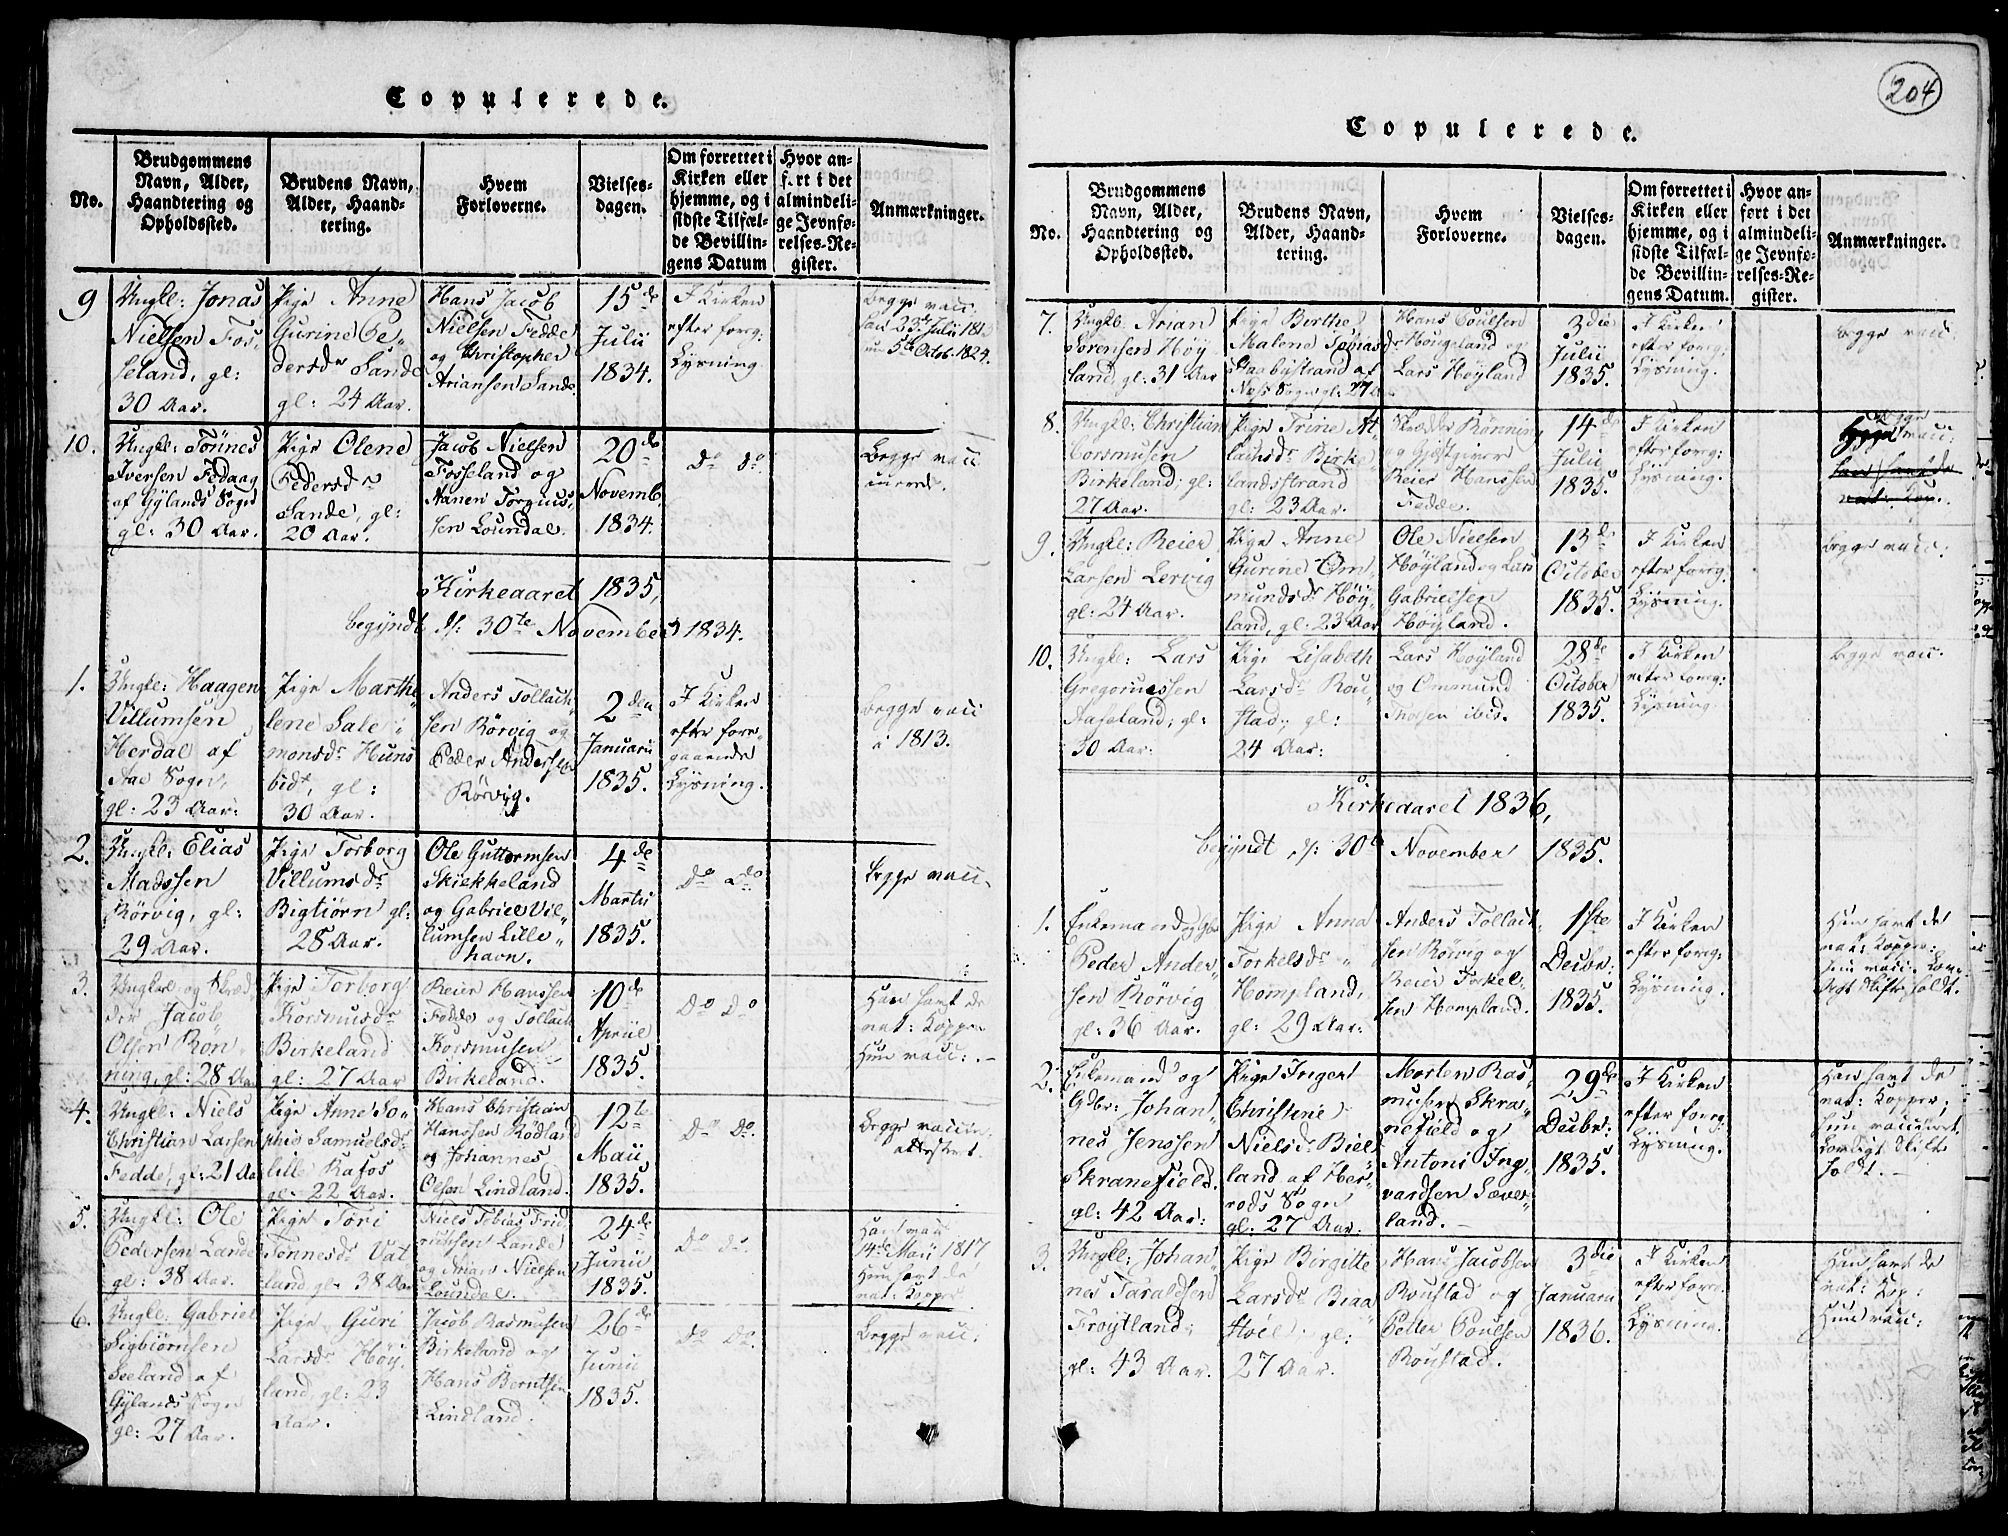 Copulerede.
No.
Brudgommens Navn, Alder, Haandtering og Opholdssted.
Brudens Navn, Alder, Haandtering.
Hvem Forloverne.
Vielsesdagen.
Om forrettet i Kirken eller hjemme, og i sidste Tilfælde Bevillingens Datum
Hvor anført i det almindelige Jevnførelses-Register.
Anmærkninger.
9
Ungk: Jonas
Nielsen Fos-
seland, gl:
30 Aar.
Pige Anne
Gurine Pe-
dersdr Sande
gl: 24 Aar.
Hans Jacob
Nielsen Fedde
og Christopher
Ariansen Sande
15de
Julii
1834.
I Kirken
efter foreg:
Lysning
Begge vacc:
10.
Ungk: Tönnes
Iversen Fedaag
af Gylands Sogn
gl: 30 Aar.
Pige Olene
Pedersdr
Sande, gl:
20 Aar.
Jacob Nielsen
Fosseland og
Nanen Torgius-
sen Loundal.
20de
Novemb.
1834.
Do Do
Begge vacci-
nerede.
Kirkeaaret 1835,
begyndt d: 30te November 1834.
1.
Ungk: Haagen
Villumsen
Herdal af
Aae Sogn,
gl: 23 Aar:
Pige Marthe
Lene Sale-
monsdr Huns-
bidt, gl:
30 Aar.
Anders Tollach-
sen Rörvig og
Peder Andersen
Rörvig.
2den
Januarii
1835.
I Kirken
efter fore-
gaaende
Lysning.
Begge vacc
i 1813.
2.
Ungk: Elias
Madssen
Rörvig, gl:
29 Aar.
Pige Torborg
Villumsdr
Bigtiörn gl:
28 Aar.
Ole Guttormsen
Skiekkeland
og Gabriel Vil-
lumsen Lille-
havn.
4de
Martii
1835.
Do Do
Begge vacc.
3.
Ungkl og Skræd-
der Jacob
Olsen Rön-
ning, gl: 28 Aar
Pige Torborg
Korsmusdr
Birkeland
gl: 27 Aar
Reier Hanssen
Fedde og Tollach
Korsmusen
Birkeland.
10de
April
1835.
Do Do
Han havt de
nat: Kopper
Hun vacc:
4.
Ungk: Niels
Christian Larsen
Fedde, gl: 21 Aar
Pige Anne So-
phie Samuelsdr
lille Rafos
gl: 22 Aar.
Hans Christian
Hanssen Rödland
og Johannes
Olsen Lindland.
12te
Maii
1835.
Do Do.
Begge vaccin:
attesteret.
5.
Ungk: Ole
Pedersen Lande
gl: 38 Aar.
Pige Töri
Tönnesdr Vat-
land gl: 38 Aar
Niels Tobias Frid-
richsen Lande
og Anan Nielsen
Loundal.
24de
Junii
1835.
Do Do.
Han vacc
14de Maii 1817
Hun havt de
nat: Kopper
6.
Ungk: Gabriel
Sigbiörnsen
Seeland af
Gylands Sogn
gl: 27 Aar.
Pige Guri
Larsdr Höy-
land, gl: 23
Aar.
Jacob Rasmusen
Birkeland og
Hans Berntsen
Lindland.
26de
Junii
1835.
Do Do.
Begge vacc:
204
Copulerede.
No.
Brudgommens Navn, Alder, Haandtering og Opholdssted.
Brudens Navn, Alder, Haandtering.
Hvem Forloverne.
Vielsesdagen.
Om forrettet i Kirken eller hjemme, og i sidste Tilfælde Bevillingens Datum.
Hvor anført i det almindelige Jevnførelses-Register.
Anmærkninger.
7.
Ungk: Arian
Sörensen Höy-
land, gl: 31 Aar
Pige Birthe
Malene Tobiasdr
Aabystrand af
Næs Sogn gl: 27
Hans Poulsen
Hougeland og
Lars Höyland
3die
Julii
1835.
I Kirken
efter foreg:
Lysning.
Begge vacc:
8.
Ungk: Christian
Corsmusen
Birkeland, gl:
27 Aar.
Pige Trine At-
lachsdr Birke-
landsstrand
gl: 23 Aar.
Skræder Rönning
og Giestgiver
Reier Hanssen
Fedde.
14de
Julii
1835.
I Kirken
efter foreg:
Lysning.
Begge
vacc:
9.
Ungk: Reier
Larsen Lervig
gl: 24 Aar.
Pige Anne
Gurine Om-
mundsdr Höy-
land, gl: 23 Aar
Ole Nielsen
Höyland og Lars
Gabrielsen
Höyland.
13de
October
1835.
I Kirken
efter foreg.
Lysning.
Begge vacc:
10.
Ungk: Lars
Gregoriussen
Aafeland, gl:
30 Aar.
Pige Lisabeth
Larsdr Rou-
stad, gl:
24 Aar:
Lars Höyland
og Ommund
Thorsen ibid.
28de
October
1835.
I Kirken
efter foreg:
Lysning.
Begge vacc.
Kirkeaaret 1836,
begyndt d: 30te November 1835.
1.
Enkemand og Gbr
Peder Ander-
sen Rörvig
gl: 36 Aar.
Pige Anna
Torkelsdr
Hompland,
gl: 29 Aar.
Anders Tollach-
sen Rörvig og
Reier Torkel-
sen Hompland.
1ste
Decbr.
1835.
I Kirken
efter foreg:
Lysning.
Han havt de
nat: Kopper:
hun vacc. Lov-
ligt Skifte holdt.
2.
Enkemand og
Gdbr: Johan-
nes Jenssen
Skranefield.
gl: 42 Aar:
Pige Inger
Christine
Nielsdr Biel-
land af Her-
rods Sogn
gl: 27 Aar.
Morten Ras-
musen Skra-
nefield og
Antoni Ing-
vardsen Sæve-
land.
29de
Decbr:
1835.
I Kirken
efter foreg:
Lysning.
Han havt de
nat: Kopper;
hun vaccineret.
Lovligt Skifte
holdt.
3.
Ungk: Johan-
nes Taraldsen
Fröytland,
gl: 43 Aar.
Pige Birgitte
Larsdr Braa-
stöl, gl:
27 Aar.
Hans Jacobsen
Roustad og
Petter Poulsen
Roustad.
3die
Januarii
1836.
I Kirken
efter foreg.
Lysning.
Han havt de
nat: Kop:
Hun vacc: